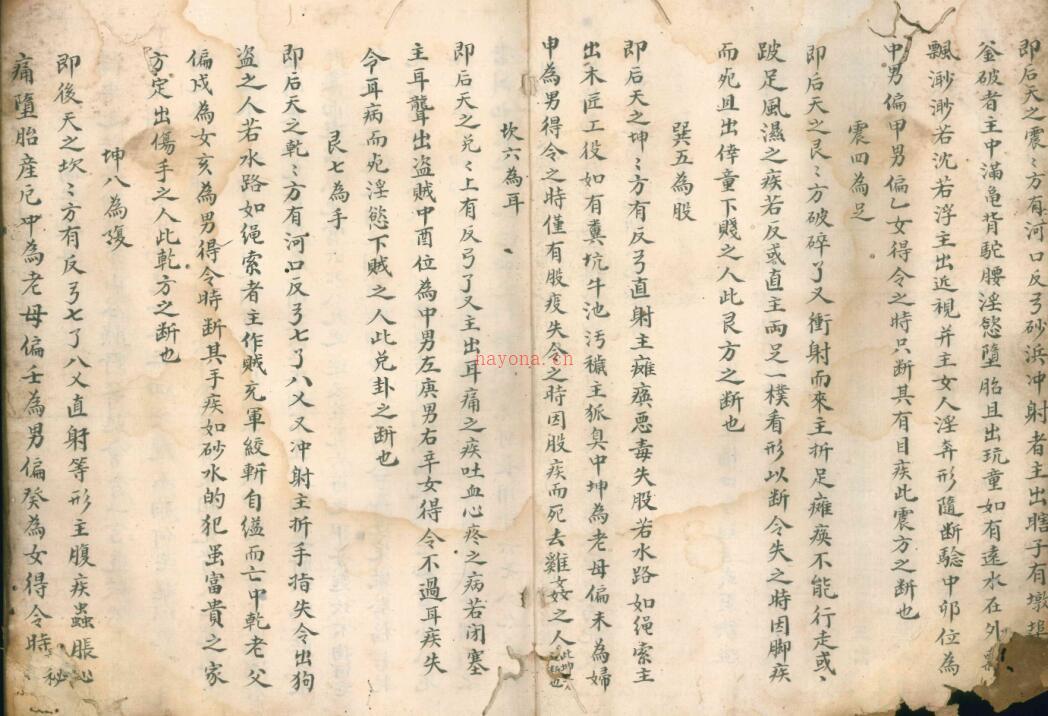 即后天之震〻方有河口反弓砂浜冲射者主出瞎子有墩埠
釜破者主中滿亀背駝腰淫慾墮胎且出玩童如有遠水在外
飄渺渺若沈若浮主出近視并主女人淫奔形隨断驗中卯位為
中男偏甲男偏乙女得令之時只断其有目疾此震方之断也
震四為足
即后天之艮〻方破碎了又衝射而來主折足癱瘓不能行走或
跛足風濕之疾若反或直主兩足一樸看形以断令失之時因脚疾
而死且出倖童下賤之人此艮方之断也
巽五為股
即后天之坤〻方有反弓直射主癱瘓悪毒失股若水路如绳索主
出木匠工役如有糞坑牛池汚穢主狐臭中坤為老母偏未為婦
申為男得令之時僅有股疫失令之時因股疾而死去雞姦之人
坎六為耳
即后天之兑〻上有反弓了又主出耳痛之疾吐血心疼之病若闭塞
主耳聾出盗贼中酉位為中男左庚男右辛女得令不過耳疾失
令耳病而死淫慾下贼之人此兑卦之断也
艮七為手
即后天之乾〻方有河口反弓七了八乂又冲射主折手指失令出狗
盗之人若水路如绳索者主作贼充軍絞斬自缢而亡中乾老父
偏戍為女亥為男得令時断其手疾如砂水的犯虽富貴之家
方定出傷手之人此乾方之断也
坤八為腹
即後天之坎〻方有反弓七了八乂直射等形主腹疾蟲脹心
痛墮胎産厄中為老母偏壬為男偏癸為女得令時秘
hayona.cn